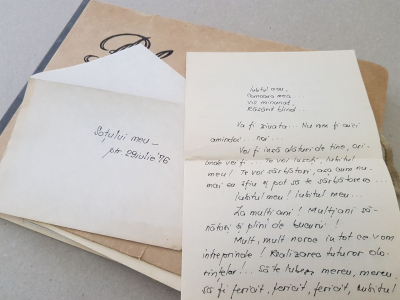 Soțului meu –
ptr. 29 iulie '76
Iubitul meu...
Comoara mea...
vis minunat,
Răsărit blînd...
Va fi ziua ta... Nu vom fi aici
amîndoi... noi...
Voi fi însă alături de tine, ori-
unde vei fi... Te voi iubi, iubitul
meu! Te voi sărbători, așa cum nu-
mai eu știu și pot să te sărbătoresc...
Iubitul meu! iubitul meu...
La mulți ani! Mulți ani să-
nătoși și plini de bucurii!
Mult, mult noroc în tot ce vom
întreprinde! Realizarea tuturor do-
rințelor... Să te iubesc mereu, mereu,
să fii fericit, fericit, fericit, iubitul